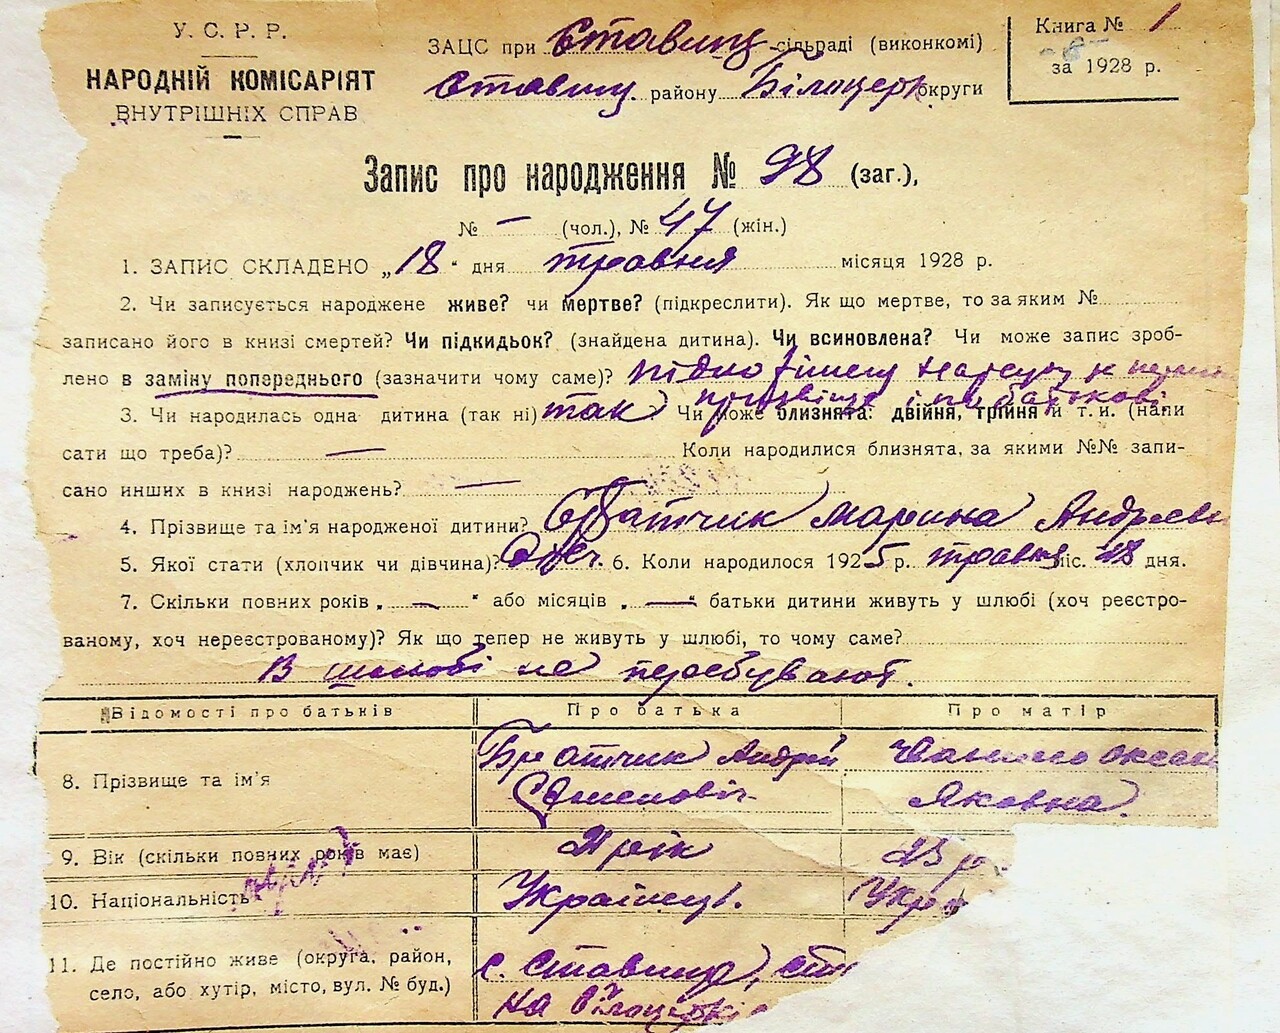 У. С. Р. Р.
НАРОДНІЙ КОМІСАРІЯТ
ВНУТРІШНІХ СПРАВ
ЗАЦС при Ставищ сільраді (виконкомі)
Ставищ. району Білоцерк округи
Книга № 1
за 1928 р.
Запис про народження № 98 (заг.),
№ — (чол.), № 47 (жін.)
1. ЗАПИС СКЛАДЕНО „18" дня травня місяця 1928 р.
2. Чи записується народжене живе? чи мертве? (підкреслити). Як що мертве, то за яким №
записано його в книзі смертей? Чи підкидьок? (знайдена дитина). Чи всиновлена? Чи може запис зроб-
лено в заміну попереднього (зазначити чому саме)?
прізвище і по батькові
3. Чи народилась одна дитина (так ні) так Чи може близнята: двійня, трійня й т. и. (напи
сати що треба)? — Коли народилися близнята, за якими №№ запи-
сано инших в книзі народжень? —
4. Прізвище та ім'я народженої дитини? Братчик Марина Андреевн
5. Якої стати (хлопчик чи дівчина)? Дівч. 6. Коли народилося 1925 р. травня міс. 18 дня.
7. Скільки повних років „ — " або місяців „ — " батьки дитини живуть у шлюбі (хоч реєстро-
ваному, хоч нереєстрованому)? Як що тепер не живуть у шлюбі, то чому саме?
В шлюбі не перебувают.
Відомості про батьків Про батька Про матір
8. Прізвище та ім'я
Братчик Андрій
Семенович
Яковна.
9. Вік (скільки повних років має) рік 23 р
10. Національність Українец. Укр
11. Де постійно живе (округа, район,
село, або хутір, місто, вул. № буд.)
с. Ставище,
на Білоцеркі